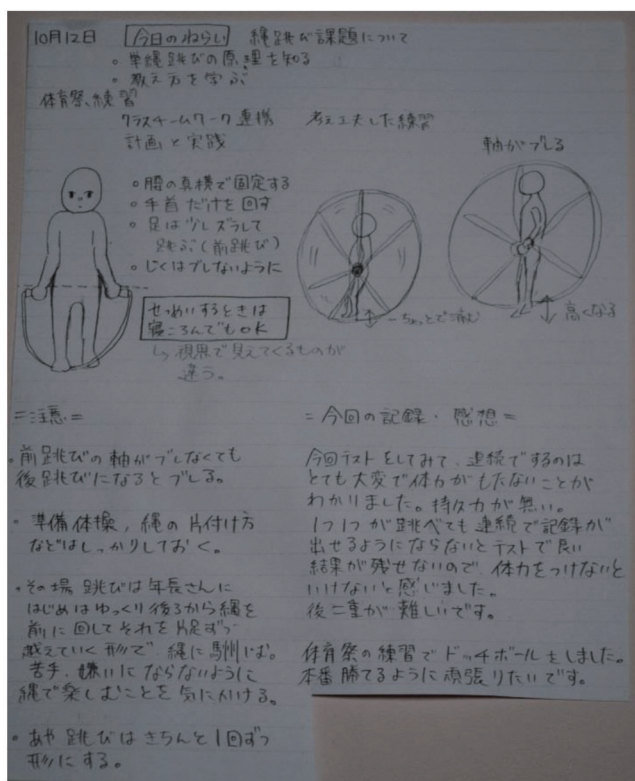 10月12日 今日のねらい 縄跳び課題について
・単縄跳びの原理を知る
・教え方を学ぶ
体育祭練習
クラスチームワーク連携 考え工夫した練習
計画と実践
軸がブレる
・腰の真横で固定する
・手首だけを回す
・足は少しズラして
跳ぶ(前跳び)
・じくはブレないように
せつめいするときは
寝ころんでもOK
↳視界で見えてくるものが
違う。
ちょっとで済む
高くなる
=注意=
・前跳びの軸がブレなくても
後跳びになるとブレる。
・準備体操,縄の片付け方
などはしっかりしておく。
・その場跳びは年長さんに
はじめはゆっくり後ろから縄を
前に回してそれを片足ずつ
越えていく形で、縄に馴じむ。
苦手、嫌いにならないように
縄で楽しむことを気に人ける。
・あや跳びはきちんと1回ずつ
形にする。
=今回の記録・感想=
今回テストをしてみて、連続でするのは
とても大変で体力がもたないことが
わかりました。持久力が無い。
1つ1つが跳べても連続で記録が
出せるようにならないとテストで良い
結果が残せないので、体力をつけないと
いけないと感じました。
後二重が難しいです。
体育祭の練習でドッチボールをしました。
本番勝てるように頑張りたいです。